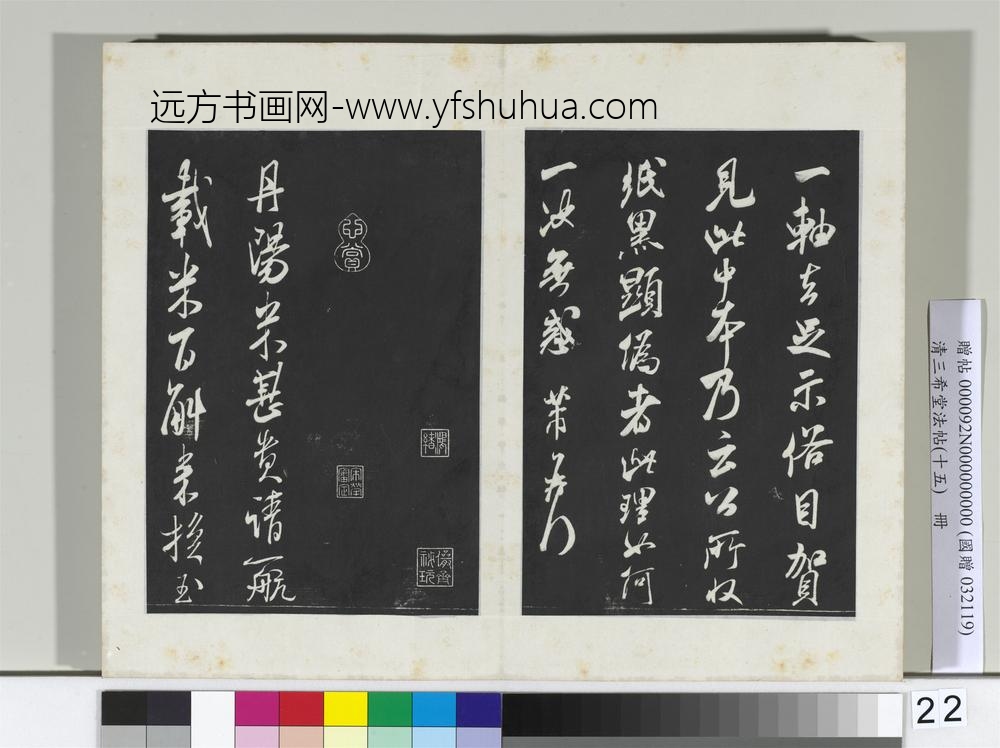 远方书画网-www.yfshuhua.com
一軸去足示俗目賀
見此中本乃云公所收
紙黑顯偽者此理如何
一決無惑 芾頓首
丹陽米甚貴請一航
載米百斛來換玉
贈帖 000092N000000000 (國贈 032119)
清三希堂法帖(十五) 冊
22